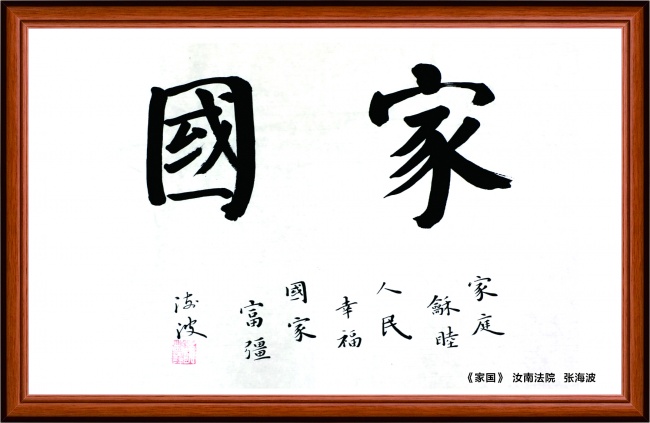 家國
家庭
龢睦
人民
幸福
國家
富彊
海波
《家国》 汝南法院 张海波